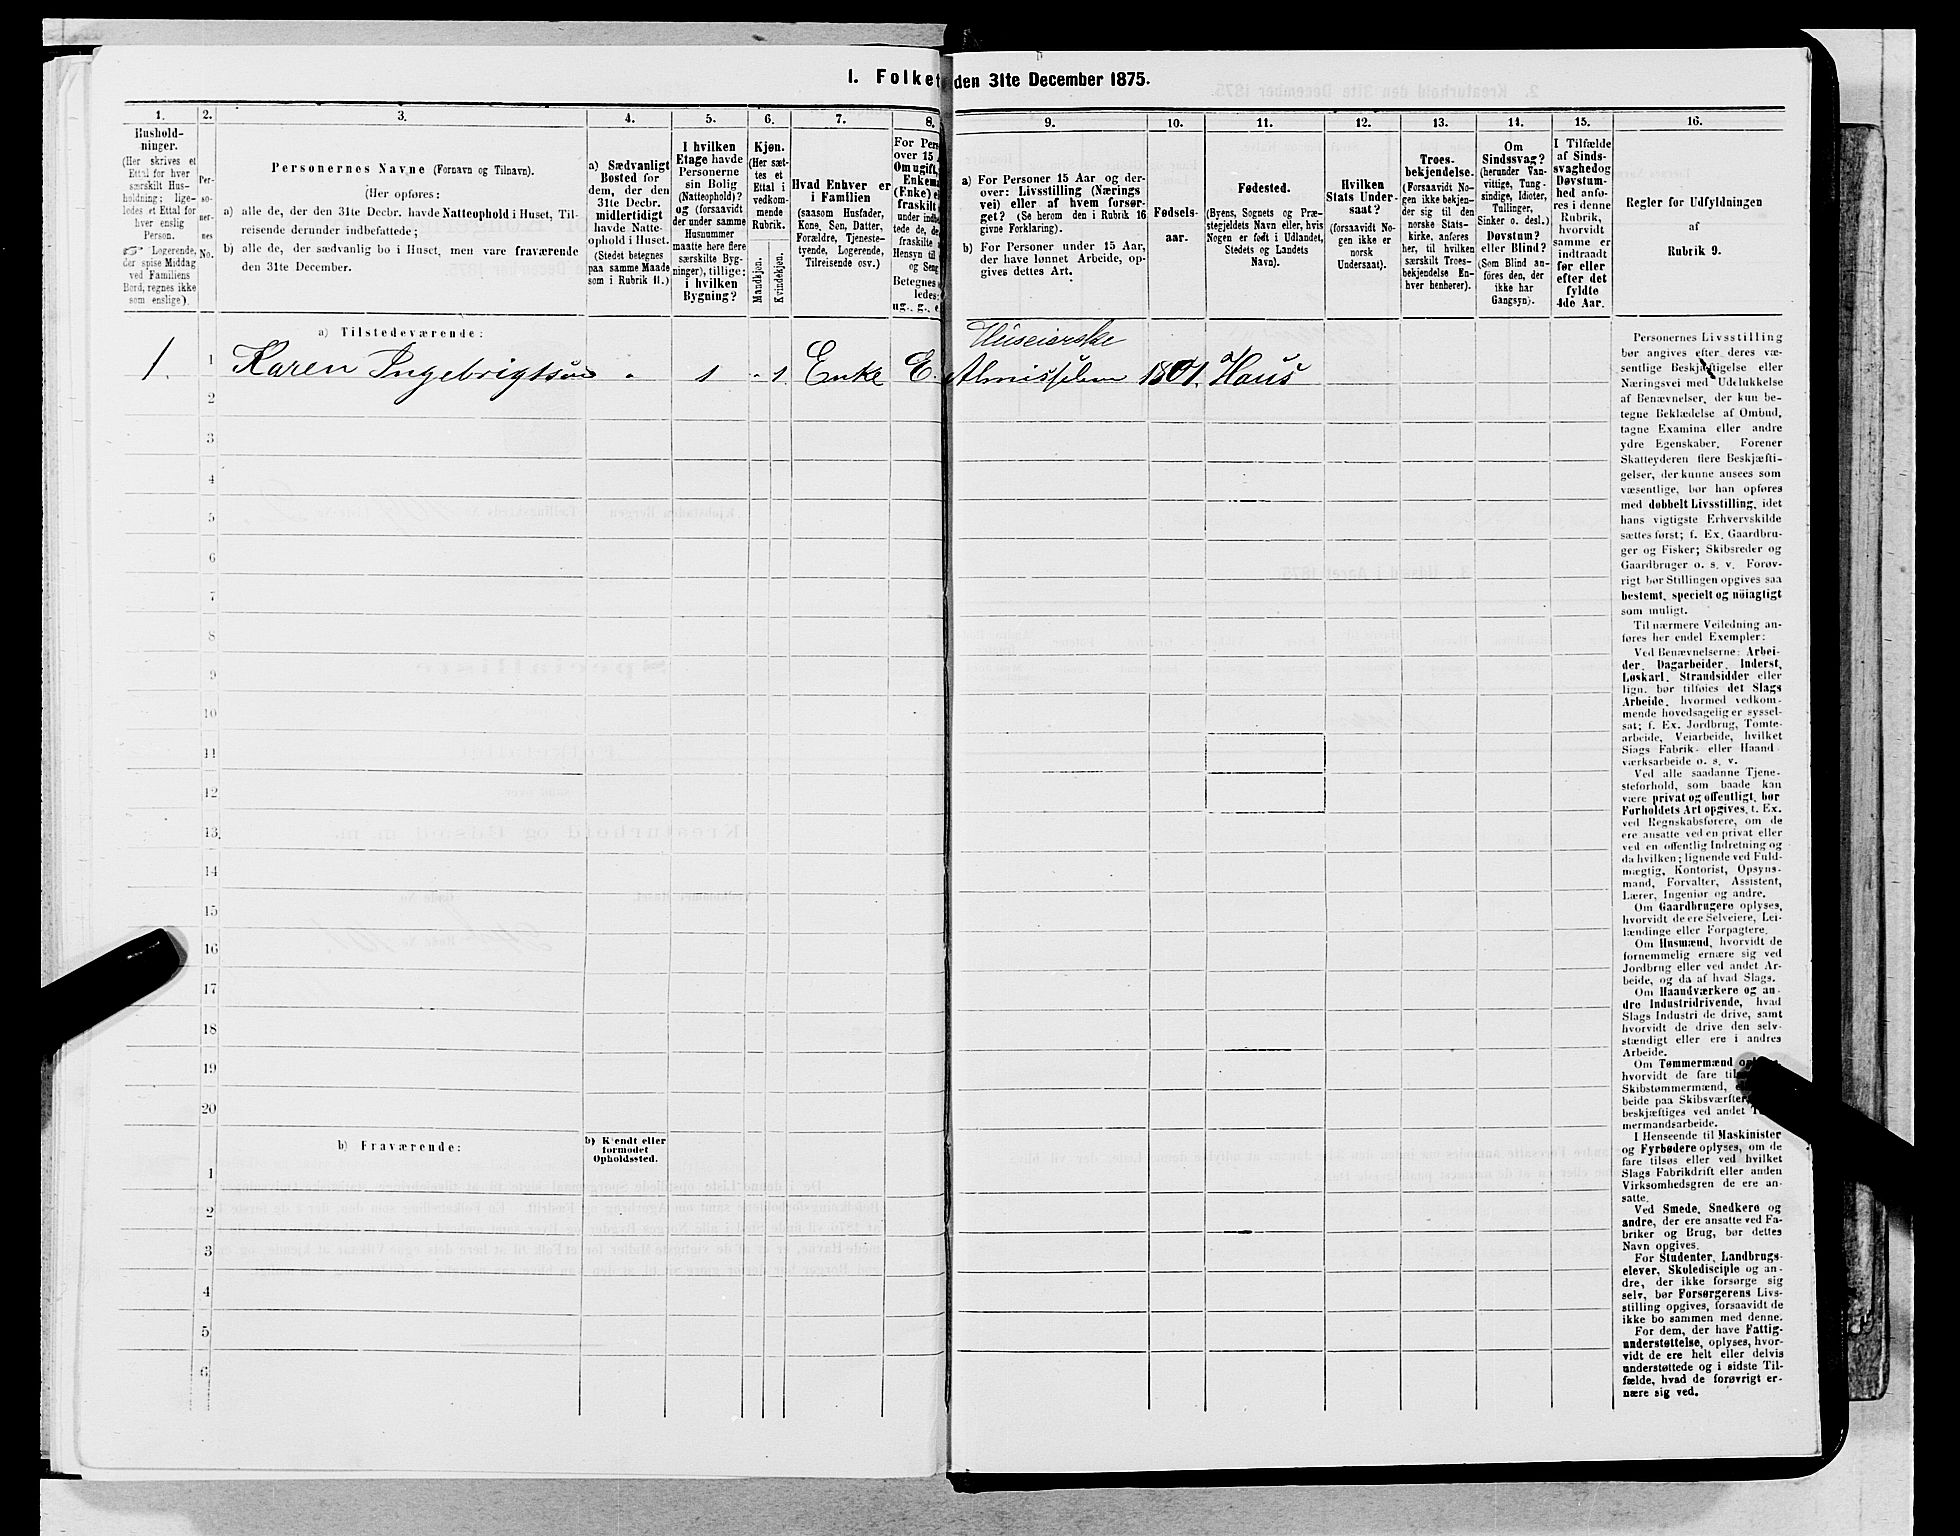 1. Folket den 31te December 1875.
1.
Hushold-
ninger.
(Her skrives et
Ettal for hver
særskilt Hus-
holdning; lige-
ledes et Ettal for
hver enslig
Person.
☞ Logerende,
der spise Middag
ved Familiens
Bord, regnes ikke
som enslige).
2.
Per-
so-
ner-
nes
No.
3.
Personernes Navne (Fornavn og Tilnavn).
(Her opføres:
a) alle de, der den 31te Decbr. havde Natteophold i Huset, Til-
reisende derunder indbefattede;
b) alle de, der sædvanlig bo i Huset, men vare fraværende
den 31te December.
4.
a) Sædvanligt
Bosted for
dem, der den
31te Decbr.
midlertidigt
havde Natte-
ophold i Huset.
(Stedet betegnes
paa samme Maade
som i Rubrik 11.)
5.
I hvilken
Etage havde
Personerne
sin Bolig
(Natteophold)?
og (forsaavidt
der under samme
Husnummer
maatte høre flere
særskilte Byg-
ninger), tillige:
i hvilken
Bygning?
6.
Kjøn.
(Her sæt-
tes et
Ettal i
vedkom-
mende
Rubrik.
Mandkjøn.
Kvindekjøn.
7.
Hvad Enhver er
i Familien
(saasom Husfader,
Kone, Søn, Datter,
Forældre, Tjeneste-
tyende, Logerende,
Tilreisende osv.)
8.
For Pers
over 15 A
Om ugift,
Enkema
(Enke) e
fraskilt
under indbe
tede de, de
fraskilte
Hensyn til
og Seng
Betegnes
ledes:
ug., g., e
9.
a) For Personer 15 Aar og der-
over: Livsstilling (Nærings
vei) eller af hvem forsør-
get? (Se herom den i Rubrik 16
givne Forklaring).
b) For Personer under 15 Aar,
der have lønnet Arbeide, op-
gives dettes Art.
10.
Fødsels-
aar.
11.
Fødested.
(Byens, Sognets og Præ-
stegjeldets Navn eller, hvis
Nogen er født i Udlandet,
Stedets og Landets
Navn).
12.
Hvilken
Stats Under-
saat?
(forsaavidt No-
gen ikke er
norsk
Undersaat).
13.
Troes-
bekjendelse.
(Forsaavidt No-
gen ikke bekjen-
der sig til den
norske Stats-
kirke, anføres
her, til hvilken
særskilt Troes-
bekjendelse En-
hver henhører).
14.
Om
Sindssvag?
(herunder Van-
vittige, Tung-
sindige, Idioter,
Tullinger,
Sinker o. desl.)
Døvstum?
eller Blind?
(Som Blind an-
føres den, der
ikke har
Gangsyn).
15.
I Tilfælde
af Sinds-
svaghed og
Døvstum-
hed anfø-
res i denne
Rubrik,
hvorvidt
samme er
indtraadt
før eller
efter det
fyldte
4de Aar.
16.
Regler for Udfyldningen
af
Rubrik 9.
a) Tilstedeværende:
1. 1 Karen Ingebrigtsøn 1 1 Enke E. Huseierske
Almisselem 1801. Haus
2
3
4
5
6
7
8
9
10
11
12
13
14
15
16
17
18
19
20
b) Fraværende:
b) Kjendt eller
formodet
Opholdssted.
1
2
3
4
5
6
Personernes Livsstilling
bør angives efter deres væ-
sentlige Beskjæftigelse eller
Næringsvei med Udelukkelse
af Benævnelser, der kun be-
tegne Beklædelse af Ombud,
tagne Examina eller andre
ydre Egenskaber. Forener
Skatteyderen flere Beskjæfti-
gelser, der kunne ansees som
væsentlige, bør han opføres
med dobbelt Livsstilling, idet
hans vigtigste Erhvervskilde
sættes først; f. Ex. Gaardbru-
ger og Fisker; Skibsreder og
Gaardbruger o. s. v. Forøv-
rigt bør Stillingen opgives saa
bestemt, specielt og nöiagtigt
som muligt.
Til nærmere Veiledning an-
føres her endel Exempler:
Ved Benævnelserne: Arbei-
der, Dagarbeider, Inderst,
Løskarl, Strandsidder eller
lign. bør tilføies det Slags
Arbeide, hvormed vedkom-
mende hovedsagelig er syssel-
sat; f. Ex. Jordbrug, Tomte-
arbeide, Veiarbeide, hvilket
Slags Fabrik- eller Haand-
værksarbeide o. s. v.
Ved alle saadanne Tjene-
steforhold, som baade kan
være privat og offentligt, bør
Forholdets Art opgives, t. Ex.
ved Regnskabsførere, om de
ere ansatte ved en privat eller
ved en offentlig Indretning og
da hvilken; lignende ved Fuld-
mægtig, Kontorist, Opsyns-
mand, Forvalter, Assistent,
Lærer, Ingeniør og andre.
Om Gaardbrugere oplyses,
hvorvidt de ere Selveiere, Lei-
lændinge eller Forpagtere.
Om Husmænd, hvorvidt de
fornemmelig ernære sig ved
Jordbrug eller ved andet Ar-
beide, og da af hvad Slags.
Om Haandværkere og an-
dre Industridrivende, hvad
Slags Industri de drive, samt
hvorvidt de drive den selv-
stændigt eller ere i andres
Arbeide.
Om Tømmermænd
hvorvidt de fare
Skibstømmermænd,
beide paa Skibsværfter,
beskjæftiges ved andet
mermandsarbeide.
I Henseende til Maskinister
og Fyrbødere oplyses, om de
fare tilsøs eller ved hvilket
Slags Fabrikdrift eller anden
Virksomhedsgren de ere an-
satte.
Ved Smede, Snedkere og
andre, der ere ansatte ved Fa-
briker og Brug, bør dettes
Navn opgives.
For Studenter, Landbrugs-
elever, Skoledisciple og an-
dre, der ikke forsørge sig
selv, bør Forsørgerens Livs-
stilling opgives, forsaavidt de
ikke bo sammen med denne.
For dem, der have Fattig-
understøttelse, oplyses, hvor-
vidt de ere helt eller delvis
understøttede og i sidste Til-
fælde, hvad de forøvrigt er-
nære sig ved.